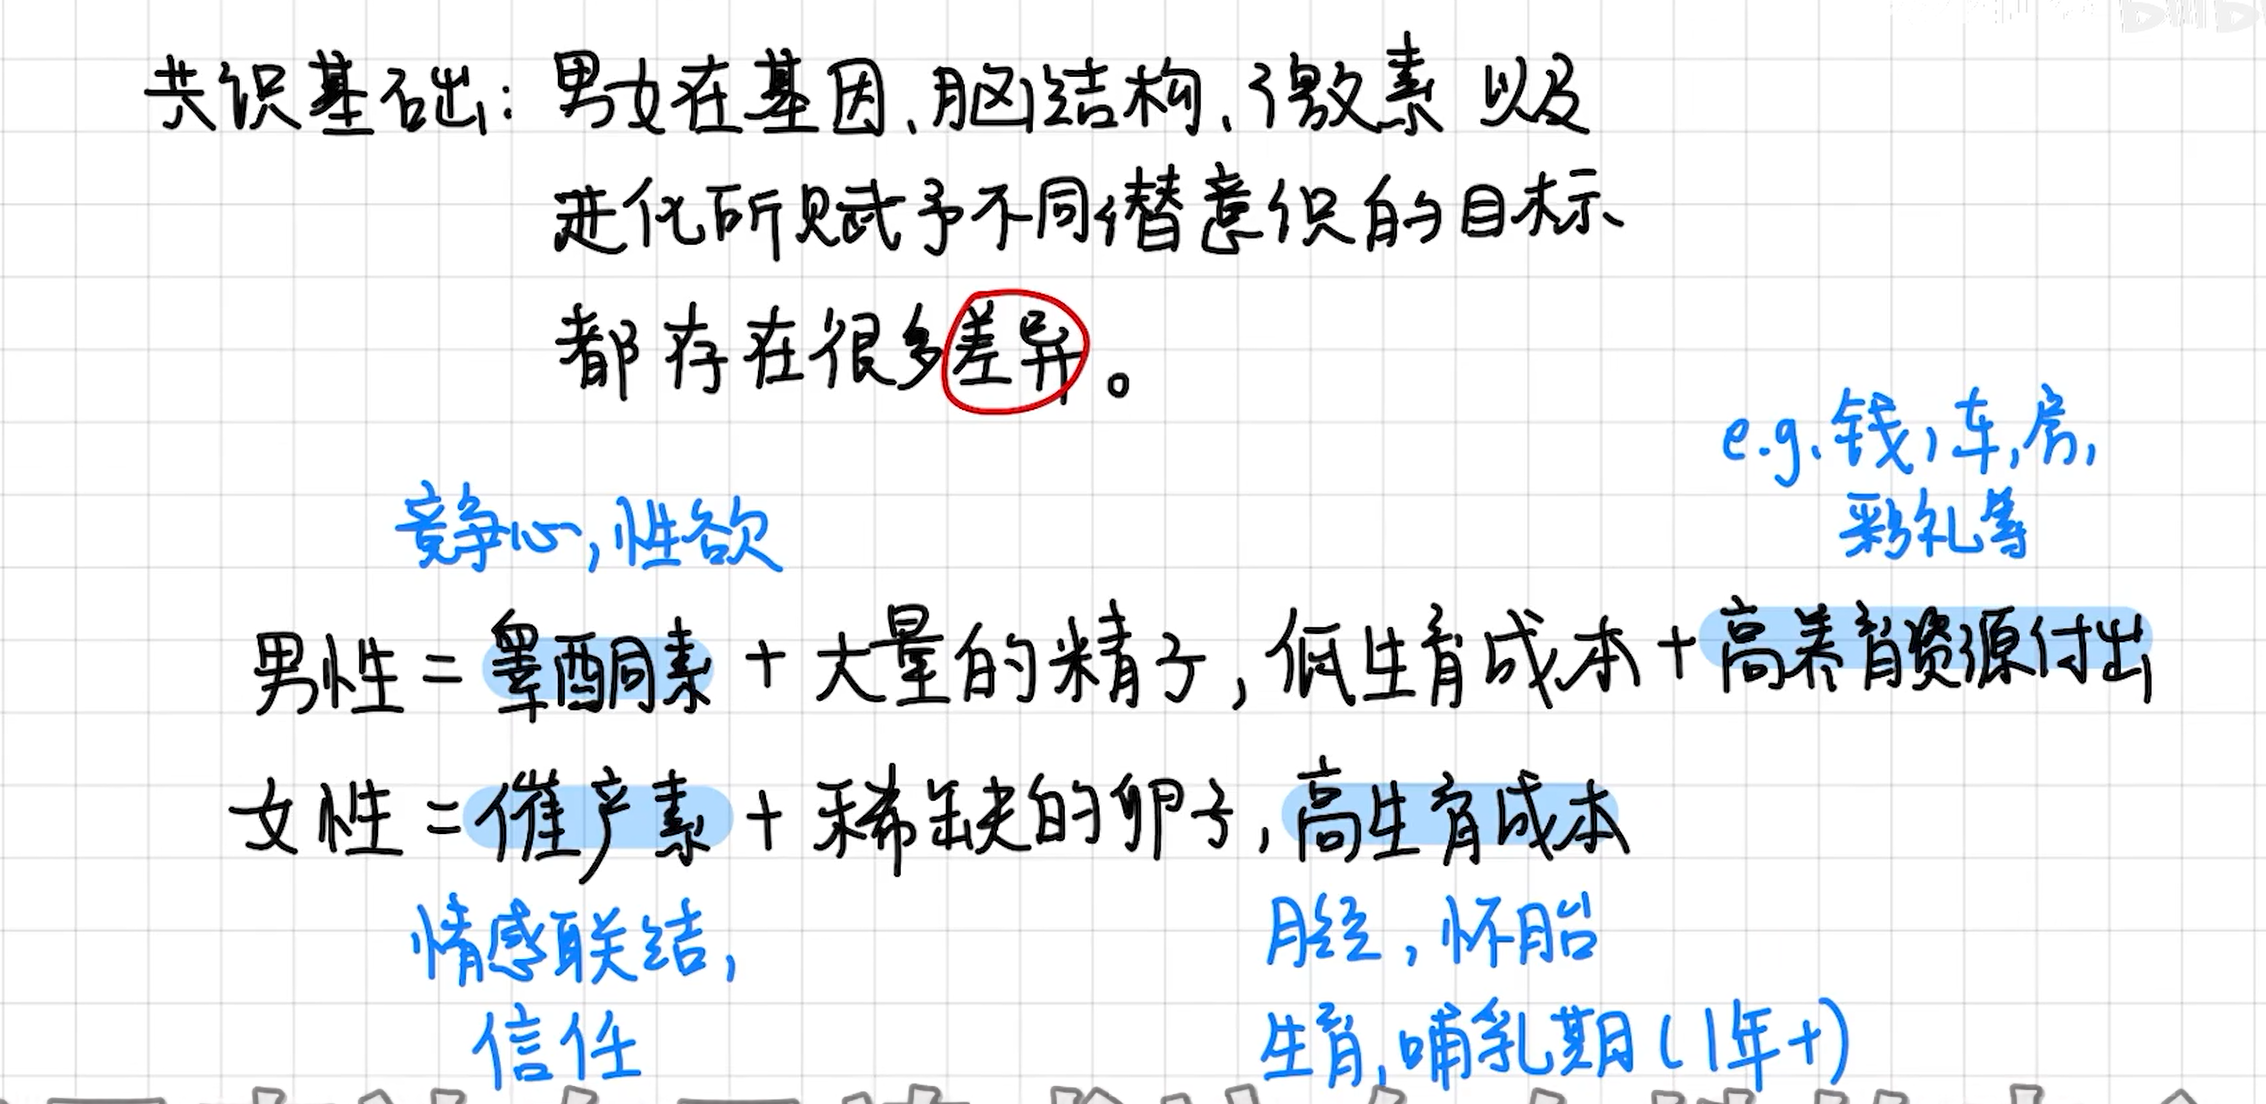 共识基础：男女在基因、脑结构、激素以及
进化所赋予不同潜意识的目标
都存在很多差异。
e.g.钱,车,房,
彩礼等
竞争心,性欲
男性=睾酮素+大量的精子,低生育成本+高养育资源付出
女性=催产素+稀缺的卵子,高生育成本
情感联结,
信任
月经,怀胎
生育,哺乳期(1年+)